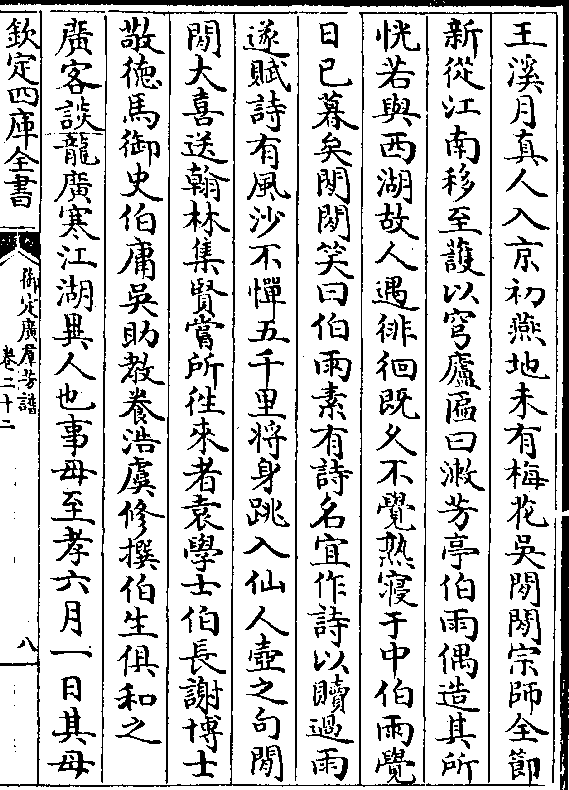 王溪月真人入京初燕地未有梅花吳閒閒宗師全節
新從江南移至護以穹廬匾曰漱芳亭伯雨偶造其所
恍若與西湖故人遇徘徊既久不覺熟寢于中伯雨覺
日已暮矣閒閒笑曰伯雨素有詩名宜作詩以贖過雨
遂賦詩有風沙不憚五千里將身跳入仙人壺之句閒
閒大喜送翰林集賢嘗所往來者袁學士伯長謝博士
敬德馬御史伯庸吳助教養浩虞修撰伯生俱和之
廣客談龍廣寒江湖異人也事母至孝六月一日其母
欽定四庫全書
御定廣羣芳譜
卷二十二
八